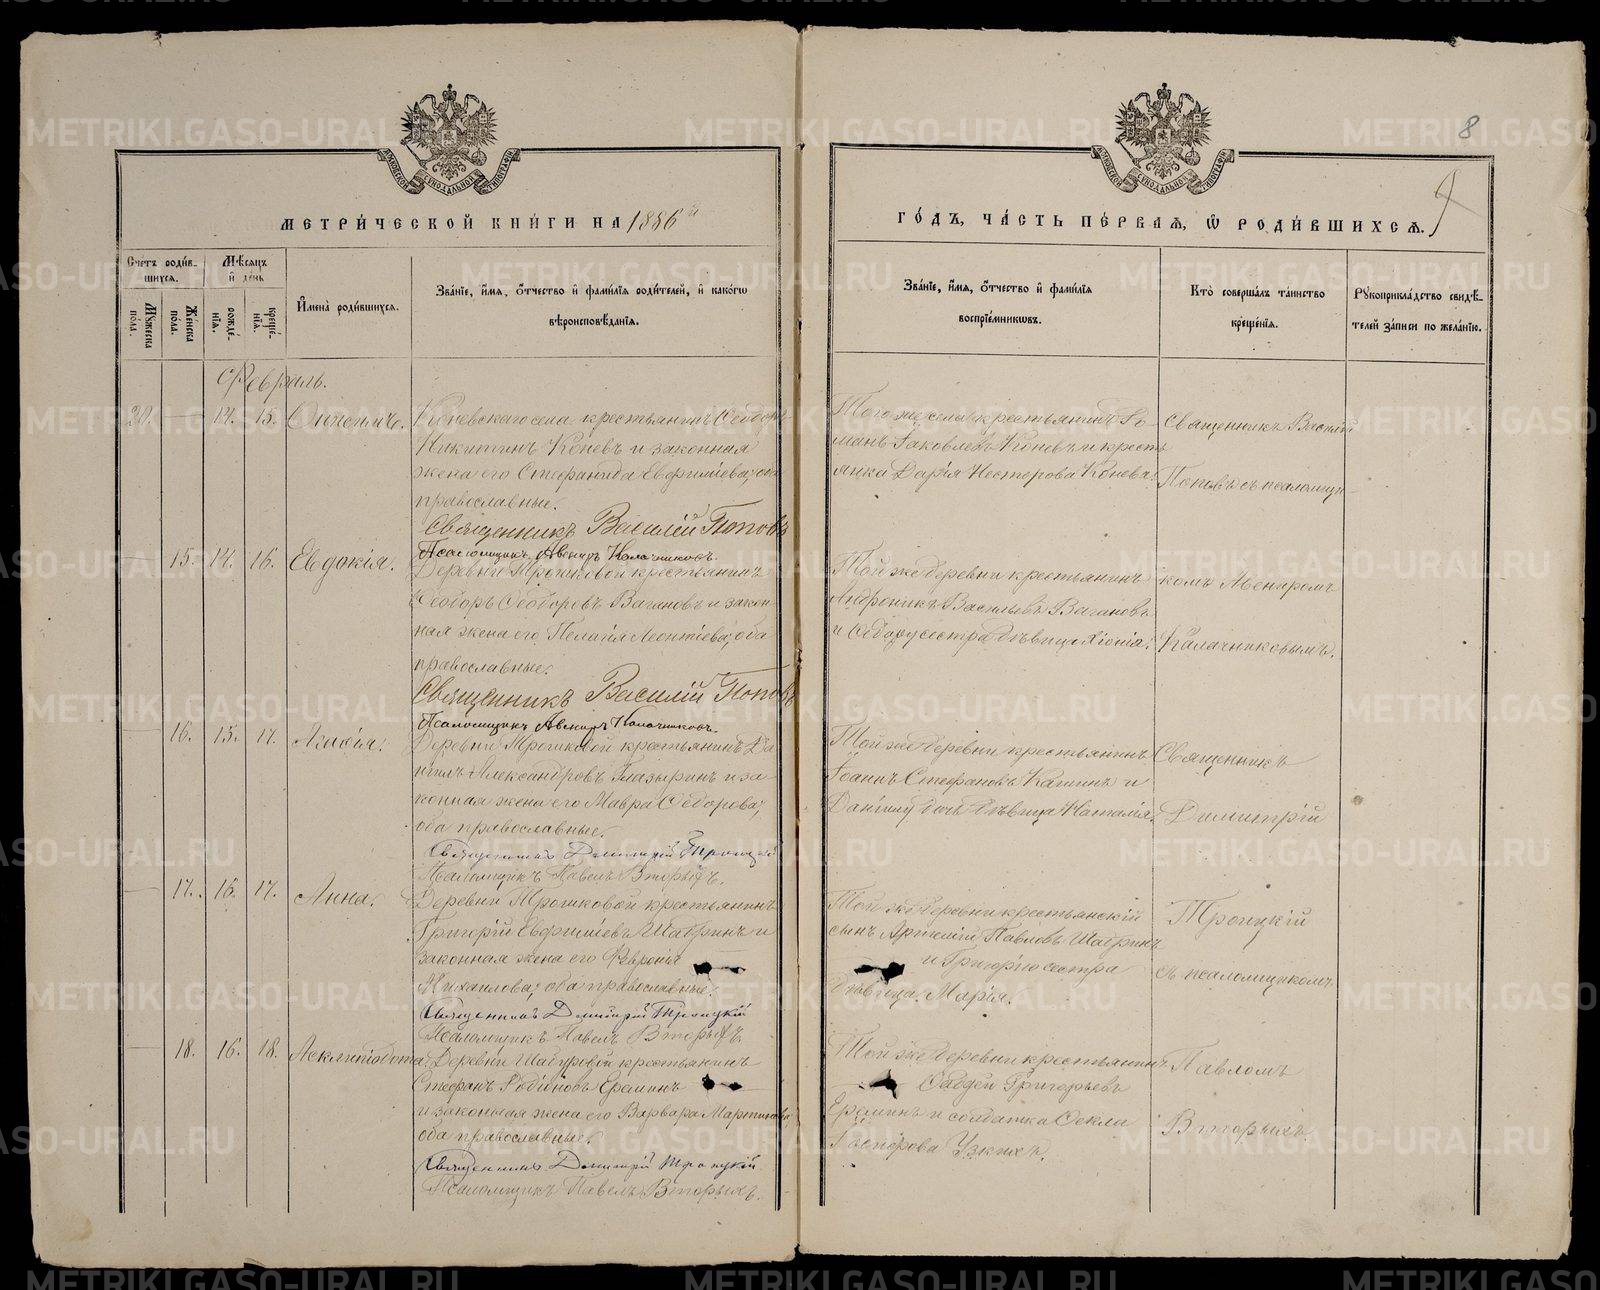 МЕТРИ́ЧЕСКОЙ КНИ́ГИ НА 1886й
ГО́ДЪ, ЧА́СТЬ ПЕ́РВАѦ, Ѡ РОДИ́ВШИХСѦ.
8
9
Сче́тъ роди́в-
шихсѧ.
Мѣ́сѧцъ
и҆ де́нь
Мꙋжеска по́ла.
Же́нска по́ла.
рожде́-
нїѧ.
креще́-
нїѧ.
И҆мена̀ роди́вшихсѧ.
Зва́нїе, и҆́мѧ, ѻ҆́тчество и҆ фами́лїѧ роди́телей, и҆ како́гѡ
вѣроисповѣ́данїѧ.
Зва́нїе, и҆́мѧ, ѻ҆́тчество и҆ фами́лїѧ
воспрїе́мникѡвъ.
Кто̀ соверша́лъ та́инство
креще́нїѧ.
Рꙋкоприкла́дство свидѣ́-
телей за́писи по жела́нїю.
Февраль.
20. 14. 15. Онисимъ.
Коневскаго села крестьянинъ Ѳеодоръ
Никитинъ Коневъ и законная
жена его Стефанида Евфимiева, оба
православные.
Священникъ Василiй Поповъ
Псаломщикъ Авениръ Калачниковъ.
Того же села крестьянинъ Ро-
манъ Iаковлевъ Коневъ и кресть
янка Дарiя Нестерова Конева.
Священникъ Василiй
Поповъ съ псаломщи-
15. 14. 16. Евдокiя.
Деревни Трошковой крестьянинъ
Ѳеодоръ Ѳеодоровъ Вагановъ и закон-
ная жена его Пелагiя Леонтiева, оба
православные.
Священникъ Василiй Поповъ
Псаломщикъ Авениръ Калачниковъ.
Той же деревни крестьянинъ
Андроникъ Васильевъ Вагановъ
и Ѳеодору сестра дѣвица Хiонiя.
комъ Авениромъ
Калачниковымъ.
16. 15. 17. Агафiя.
Деревни Трошковой крестьянинъ Да-
нiилъ Александровъ Глазыринъ и за
конная жена его Мавра Ѳеодорова,
оба православные.
Священникъ Димитрiй Троицкiй
Псаломщикъ Павелъ Вторыхъ.
Той же деревни крестьянинъ
Iоаннъ Стефановъ Капинъ и
Данiилу дочь дѣвица Наталiя.
Священникъ
Димитрiй
17. 16. 17. Анна.
Деревни Трошковой крестьянинъ
Григорiй Евфимiевъ Шабринъ и
законная жена его Февронья
Михаилова, оба православные.
Священникъ Димитрiй Троицкiй
Псаломщикъ Павелъ Вторыхъ.
Той же деревни крестьянскiй
сынъ Артемiй Павловъ Шабринъ
и Григорiю сестра
дѣвица Марiя.
Троицкiй
съ псаломщикомъ
18. 16. 18. Асклипiодота.
Деревни Шабуровой крестьянинъ
Стефанъ Родiоновъ Ереминъ
и законная жена его Варвара Мартинова,
оба православные.
Священникъ Димитрiй Троицкiй
Псаломщикъ Павелъ Вторыхъ.
Той же деревни крестьянинъ
Ѳаддей Григорьевъ
Ереминъ и солдатка Ѳекла
Нестерова Узкихъ.
Павломъ
Вторыхъ.